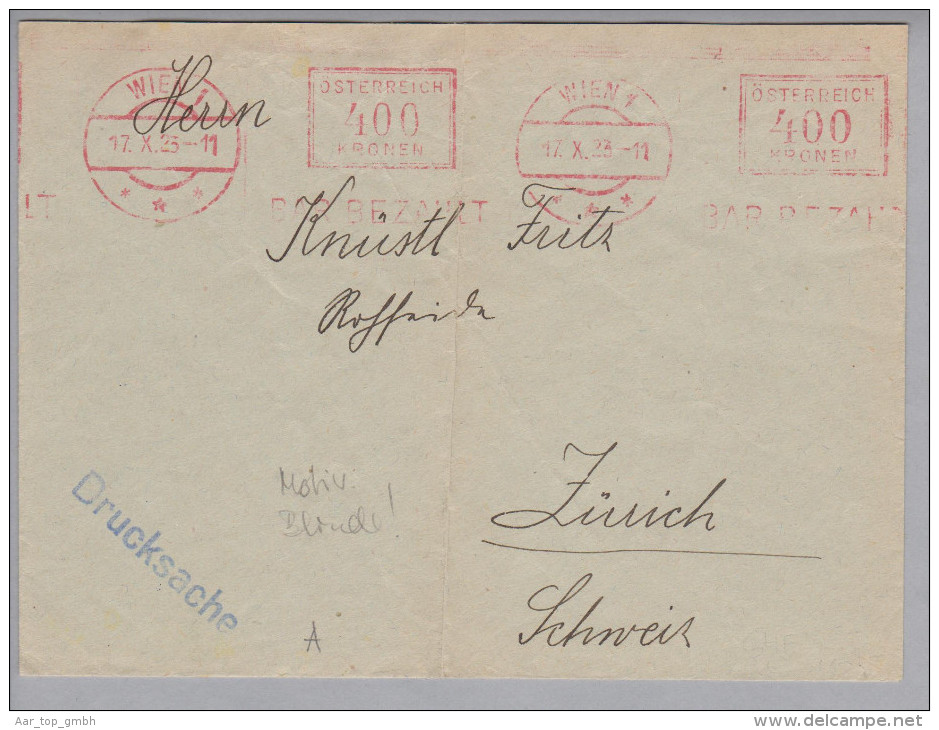 WIEN 1
17. X. 23-11
ÖSTERREICH
400
KRONEN
WIEN 1
17. X. 23-11
ÖSTERREICH
400
KRONEN
LT
BAR BEZAHLT
BAR BEZAH
Herrn
Knüstl Fritz
Rohseide
Zürich
Schweiz
Drucksache
Motiv:
A
Aar_top_gmbh
www.delcampe.net